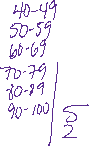 40-49
50-59
60-69
70-79
80-89
90-100
5
2